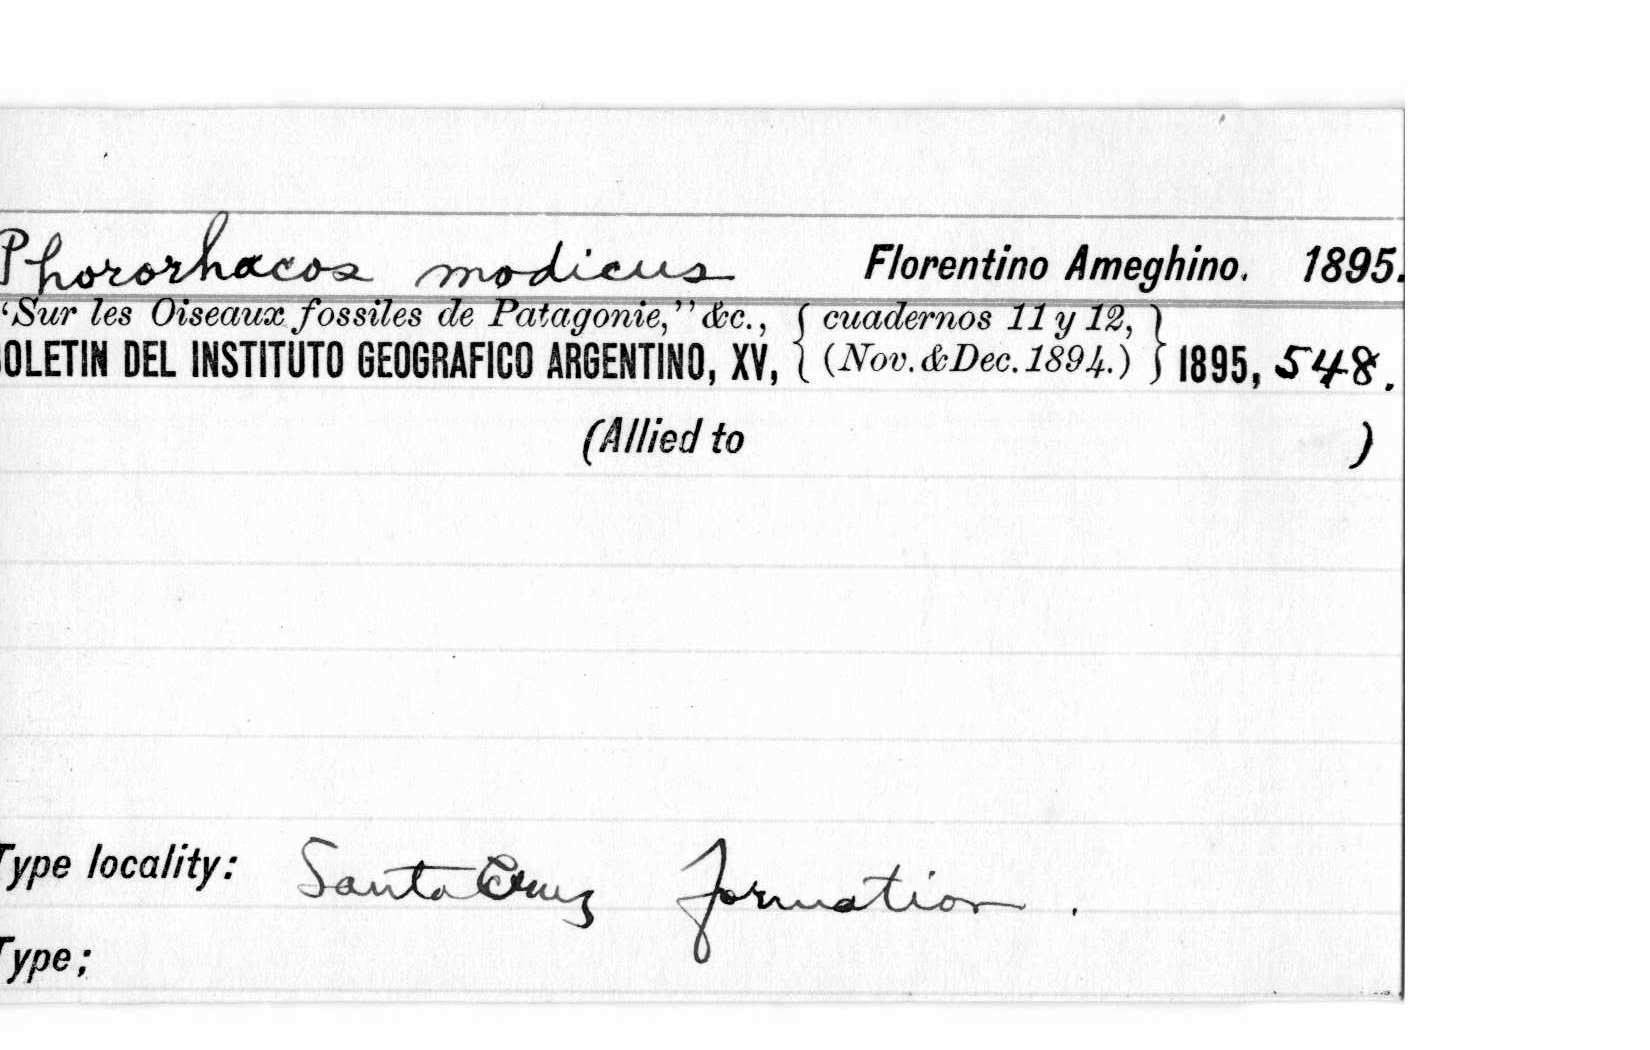 Phororhacos modicus Florentino Ameghino. 1895.
‘Sur les Oiseaux fossiles de Patagonie,” &c., { cuadernos 11 y 12, }
OLETIN DEL INSTITUTO GEOGRAFICO ARGENTINO, XV, (Nov. & Dec. 1894.) 1895, 548.
(Allied to )
Type locality: Santa Cruz formation.
Type;